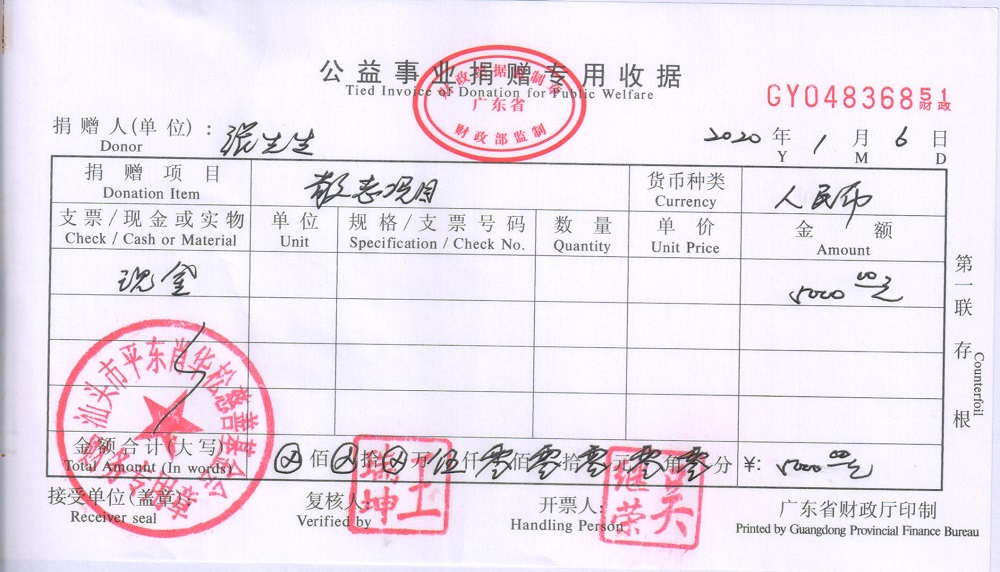 公益事业捐赠专用收据
Tied Invoice of Donation for Public Welfare
广东省
财政部监制
GY04836851
财政
捐赠人(单位): 张先生
Donor
2020年1月6日
Y M D
捐赠项目
Donation Item
货币种类
Currency
人民币
支票/现金或实物
Check / Cash or Material
单位
Unit
规格/支票号码
Specification / Check No.
数量
Quantity
单价
Unit Price
金额
Amount
现金
5000 00元
第一联 存根
Counterfoil
汕头市平东肖华松慈善基金会
金额合计(大写)
Total Amount (In words)
佰 拾 万伍仟零佰零拾零元零角零分
¥: 5000 00元
接受单位(盖章):
Receiver seal
复核人:
Verified by
王瑞坤
开票人:
Handling Person
吴继荣
广东省财政厅印制
Printed by Guangdong Provincial Finance Bureau